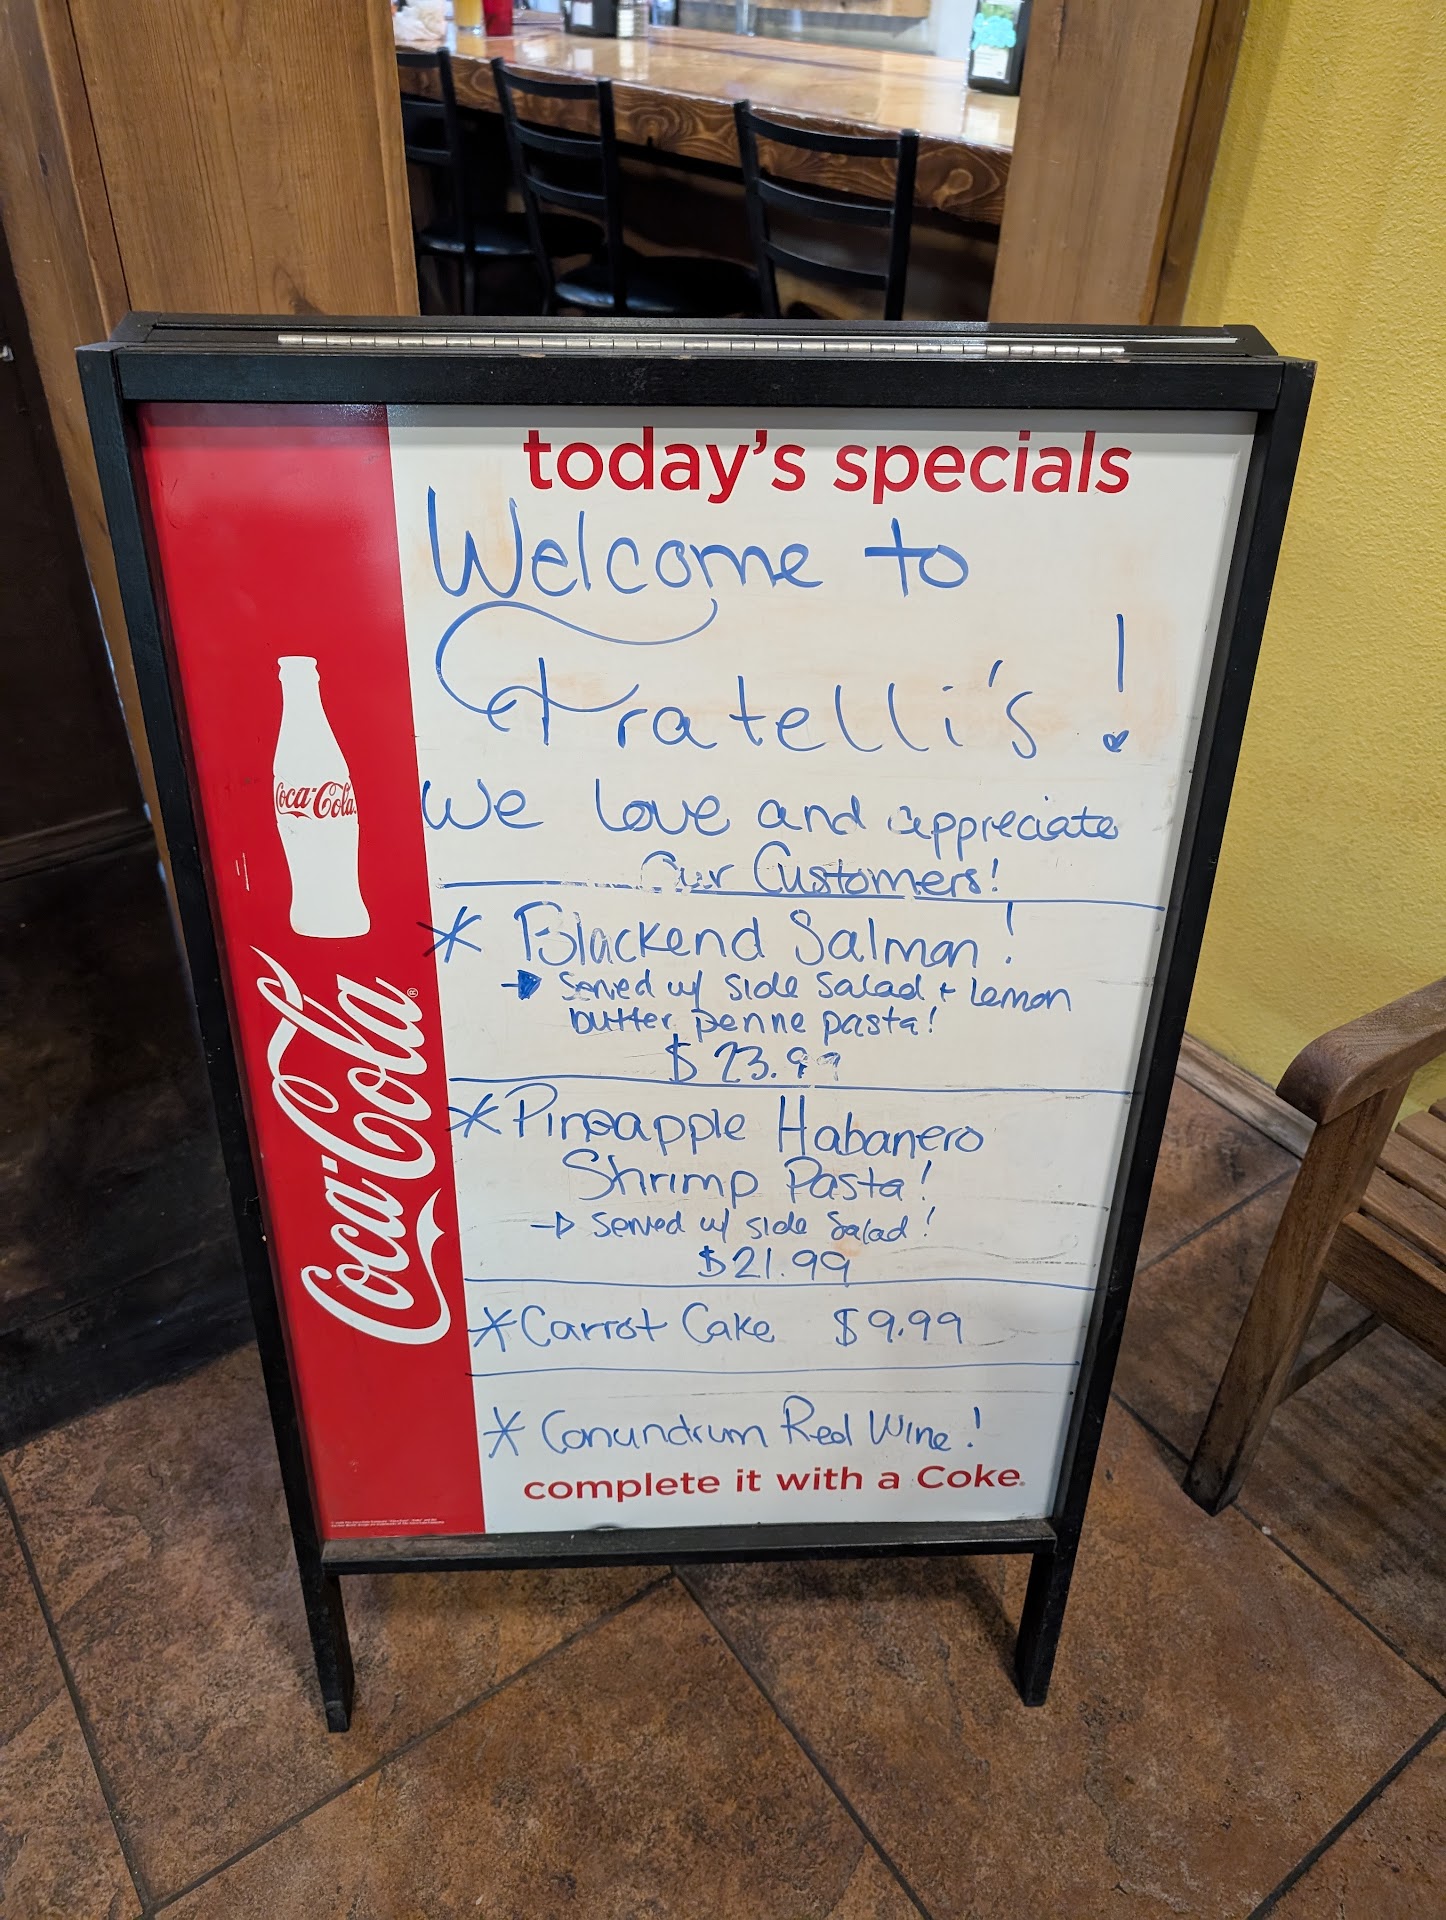 today's specials
Welcome to
Fratelli's!
We love and appreciate
Our Customers!
* Blackend Salmon!
Served w/ side salad + Lemon
butter penne pasta!
$23.99
* Pineapple Habanero
Shrimp Pasta!
Served w/ side salad!
$21.99
* Carrot Cake $9.99
* Conundrum Red Wine!
complete it with a Coke®
Coca-Cola
Coca-Cola®